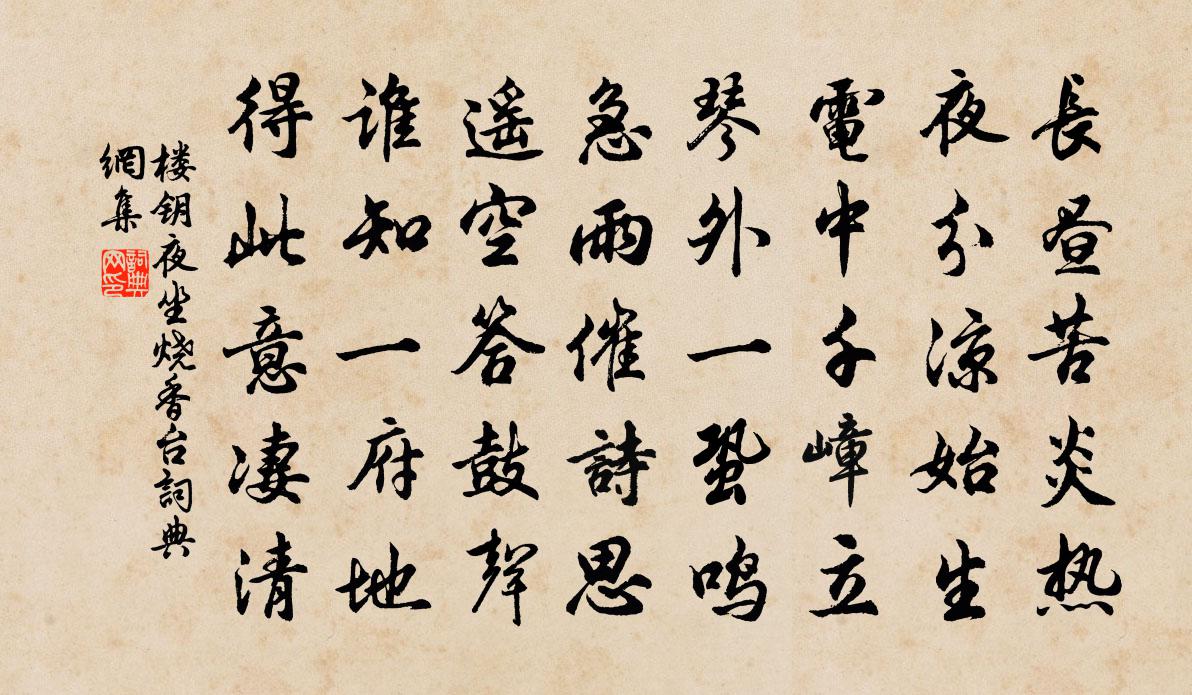 長昼苦炎热
夜分涼始生
電中千嶂立
琴外一蛩鸣
急雨催詩思
遥空答鼓聲
谁知一府地
得此意凄清
楼钥夜坐烧香台詞典
網集
詞典
网印